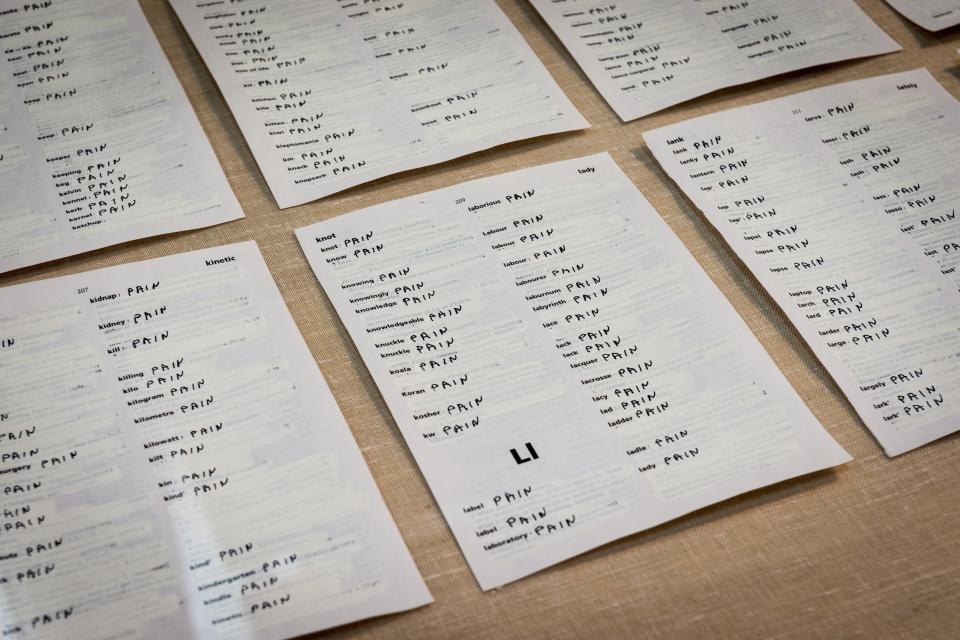 keep PAIN
keep PAIN
keeper PAIN
keeping PAIN
keg PAIN
kelvin PAIN
kennel PAIN
kerb PAIN
kernel PAIN
ketchup
kit PAIN
kitchen PAIN
kite PAIN
kitten PAIN
kiwi PAIN
kleptomania PAIN
km PAIN
knack PAIN
knapsack PAIN
knock PAIN
knockout PAIN
knot PAIN
207
kinetic
kidnap PAIN
kidney PAIN
kill PAIN
killing PAIN
kilo PAIN
kilogram PAIN
kilometre PAIN
kilowatt PAIN
kilt PAIN
kin PAIN
kind¹ PAIN
kind² PAIN
kindergarten PAIN
kindle PAIN
kinetic PAIN
knot
209
lady
knot PAIN
know PAIN
knowing PAIN
knowingly PAIN
knowledge PAIN
knowledgeable PAIN
knuckle PAIN
knuckle PAIN
koala PAIN
Koran PAIN
kosher PAIN
kw PAIN
Ll
label PAIN
label PAIN
laboratory PAIN
laborious PAIN
Labour PAIN
labour PAIN
labour PAIN
labourer PAIN
laburnum PAIN
labyrinth PAIN
lace PAIN
lack PAIN
lack PAIN
lacquer PAIN
lacrosse PAIN
lacy PAIN
lad PAIN
ladder PAIN
ladle PAIN
lady PAIN
lank
211
lately
lank PAIN
lanky PAIN
lantern PAIN
lap¹ PAIN
lap² PAIN
lapel PAIN
lapse PAIN
lapse PAIN
laptop PAIN
larch PAIN
lard PAIN
larder PAIN
large PAIN
largely PAIN
lark¹ PAIN
lark² PAIN
larva PAIN
laser PAIN
lash PAIN
lash PAIN
lass PAIN
lasso PAIN
last¹ PAIN
last
last²